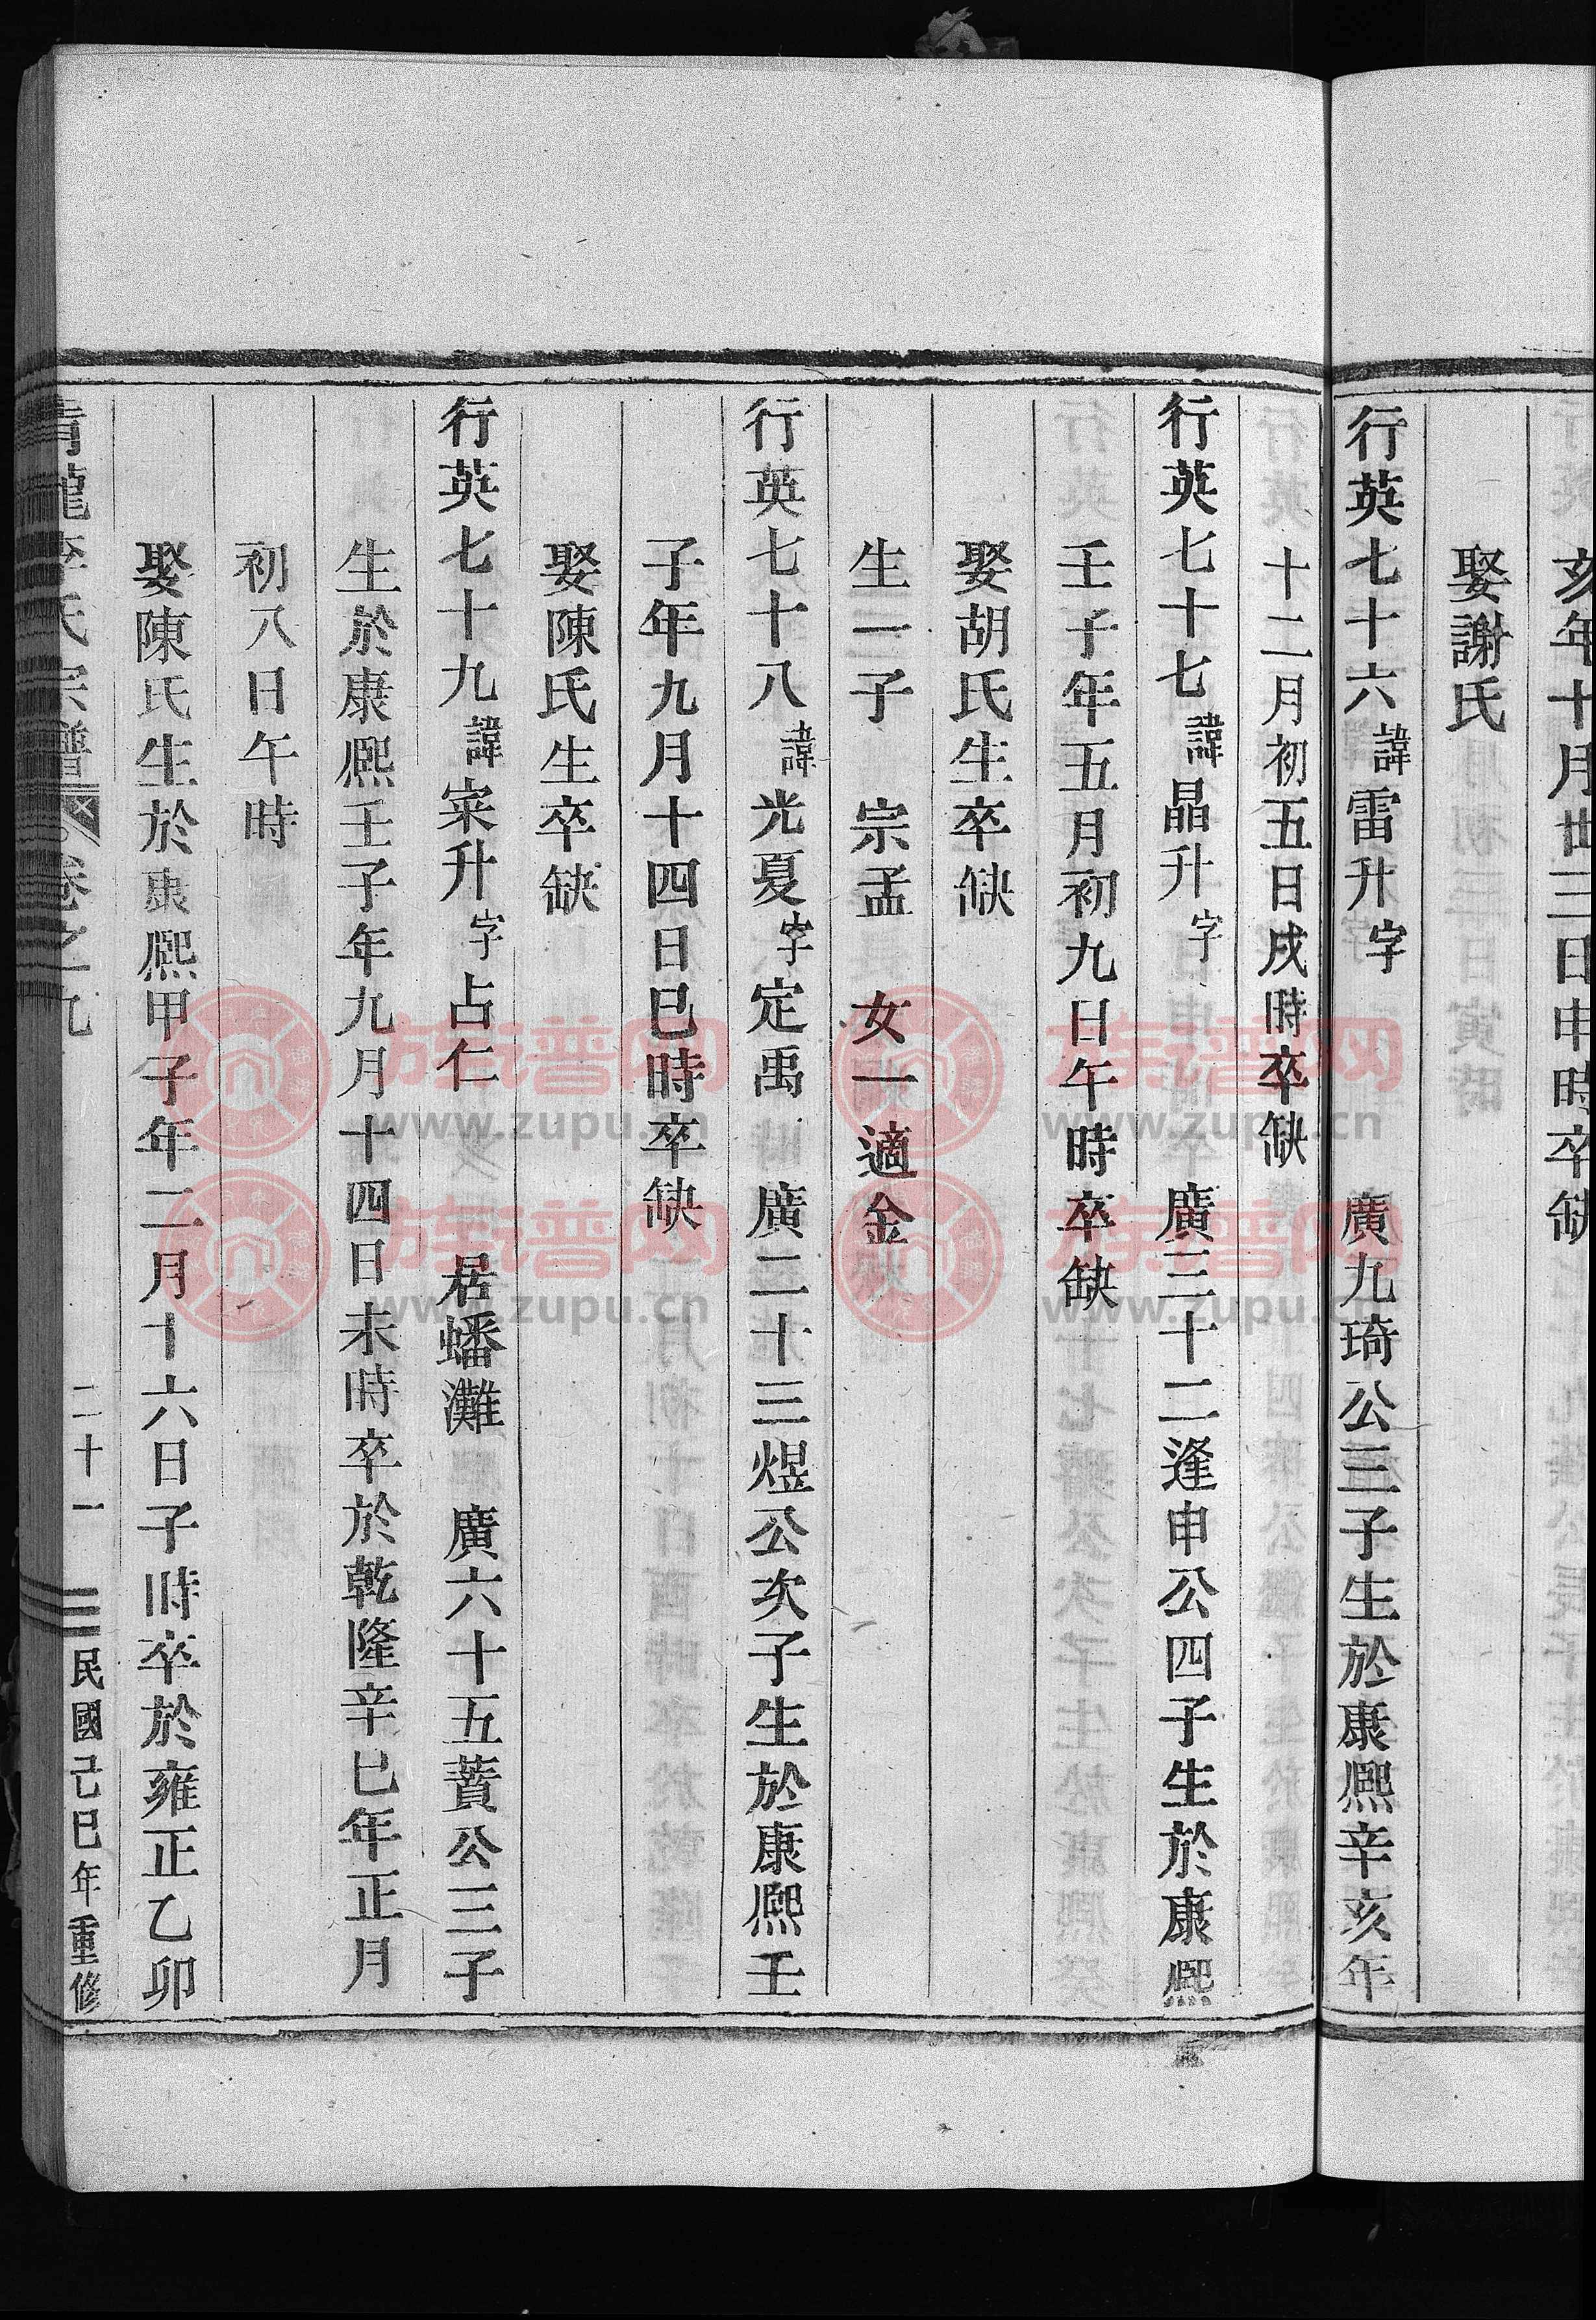 亥年十月廿三日申時卒缺
娶謝氏
行英七十六諱雷升字　廣九琦公三子生於康熙辛亥年
十二月初五日戌時卒缺
行英七十七諱晶升字　廣三十二逢申公四子生於康熙
壬子年五月初九日午時卒缺
娶胡氏生卒缺
生一子　宗孟　女一適金
行英七十八諱光夏字定禹　廣二十三煜公次子生於康熙壬
子年九月十四日巳時卒缺
娶陳氏生卒缺
行英七十九諱寀升字占仁　居蟠灘　廣六十五蕡公三子
生於康熙壬子年九月十四日未時卒於乾隆辛巳年正月
初八日午時
娶陳氏生於康熙甲子年二月十六日子時卒於雍正乙卯
青龍李氏宗譜　卷之九　二十一　民國己巳年重修
族谱网
www.zupu.cn
族谱网
www.zupu.cn
族谱网
www.zupu.cn
族谱网
www.zupu.cn